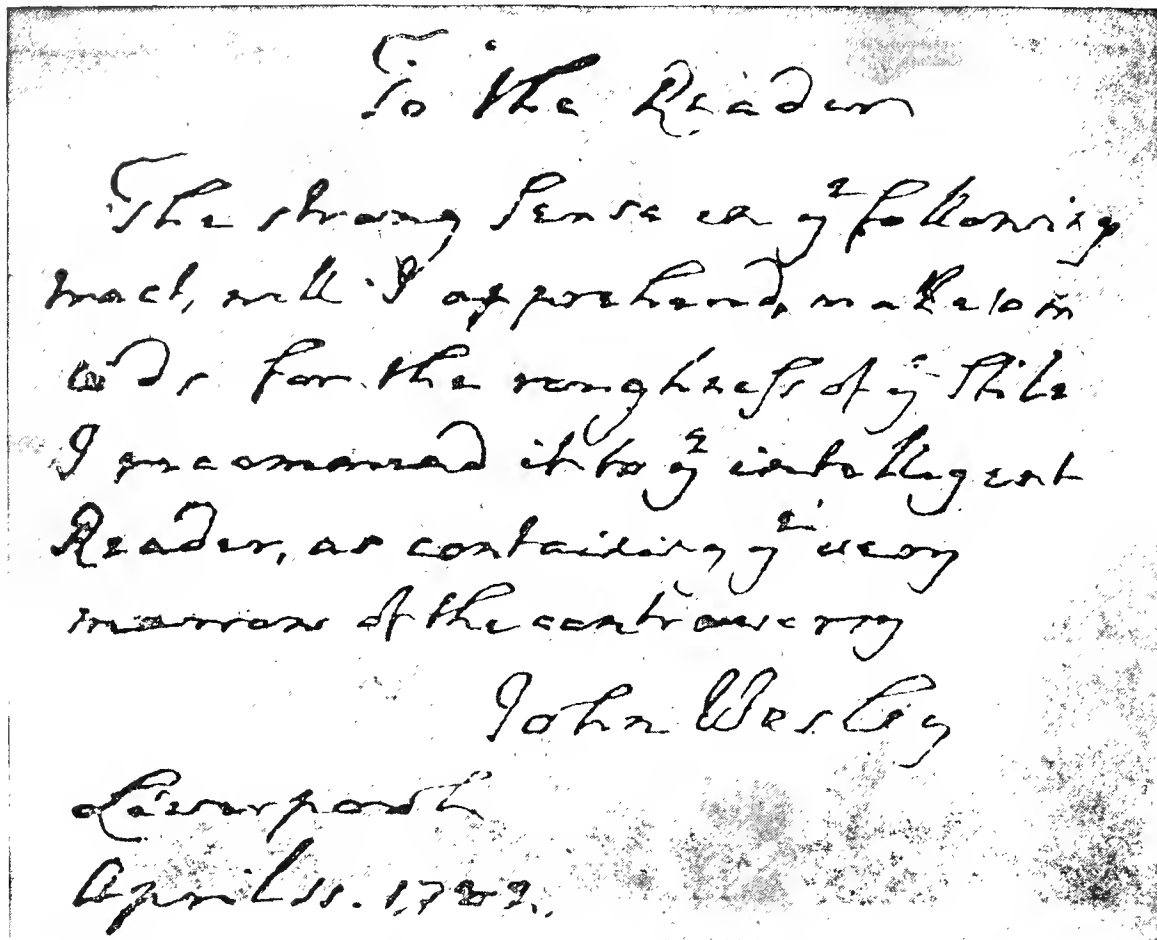 To the Reader
The strong Sense in yᵉ following
tract, will I apprehend, make am
ends for the roughness of yᵉ Stile
I recommend it to yᵉ intelligent
Reader, as containing yᵉ very
marrow of the controversy
John Wesley
Liverpool
April 11. 1782.